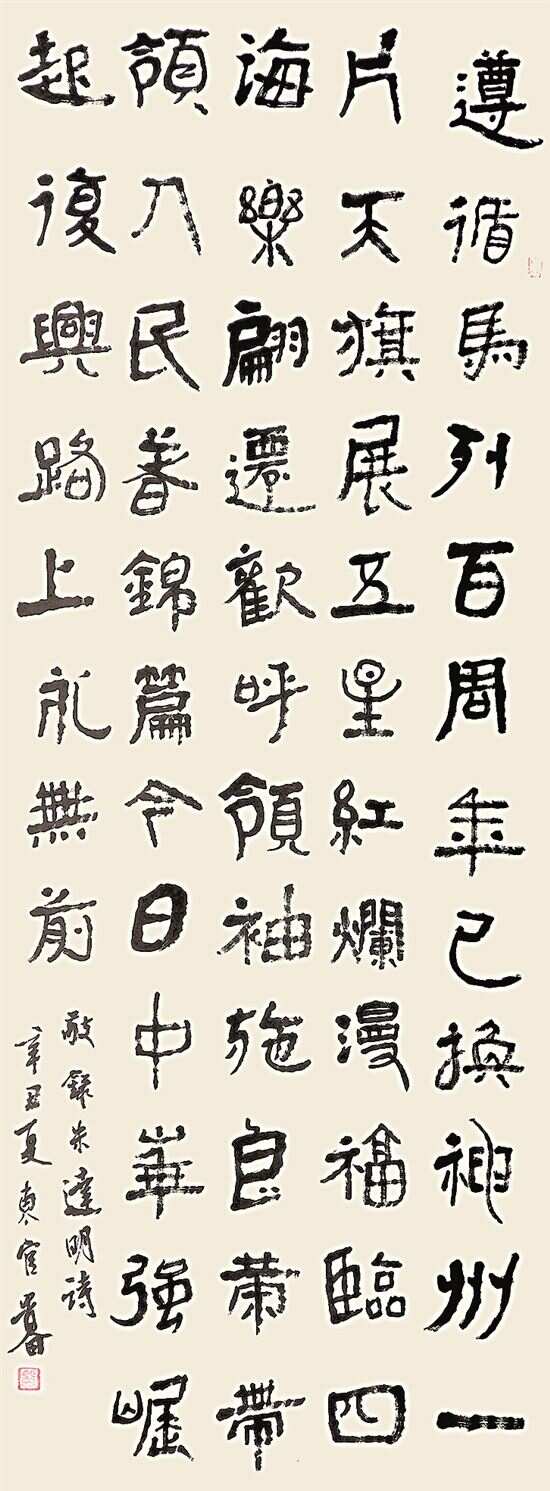 遵循馬列百周年已換神州一
片天旗展五星紅爛漫福臨四
海樂翩遷歡呼領袖施良策帶
領人民著錦篇今日中華強崛
起復興路上永無前
敬錄朱達明詩
辛丑夏東官